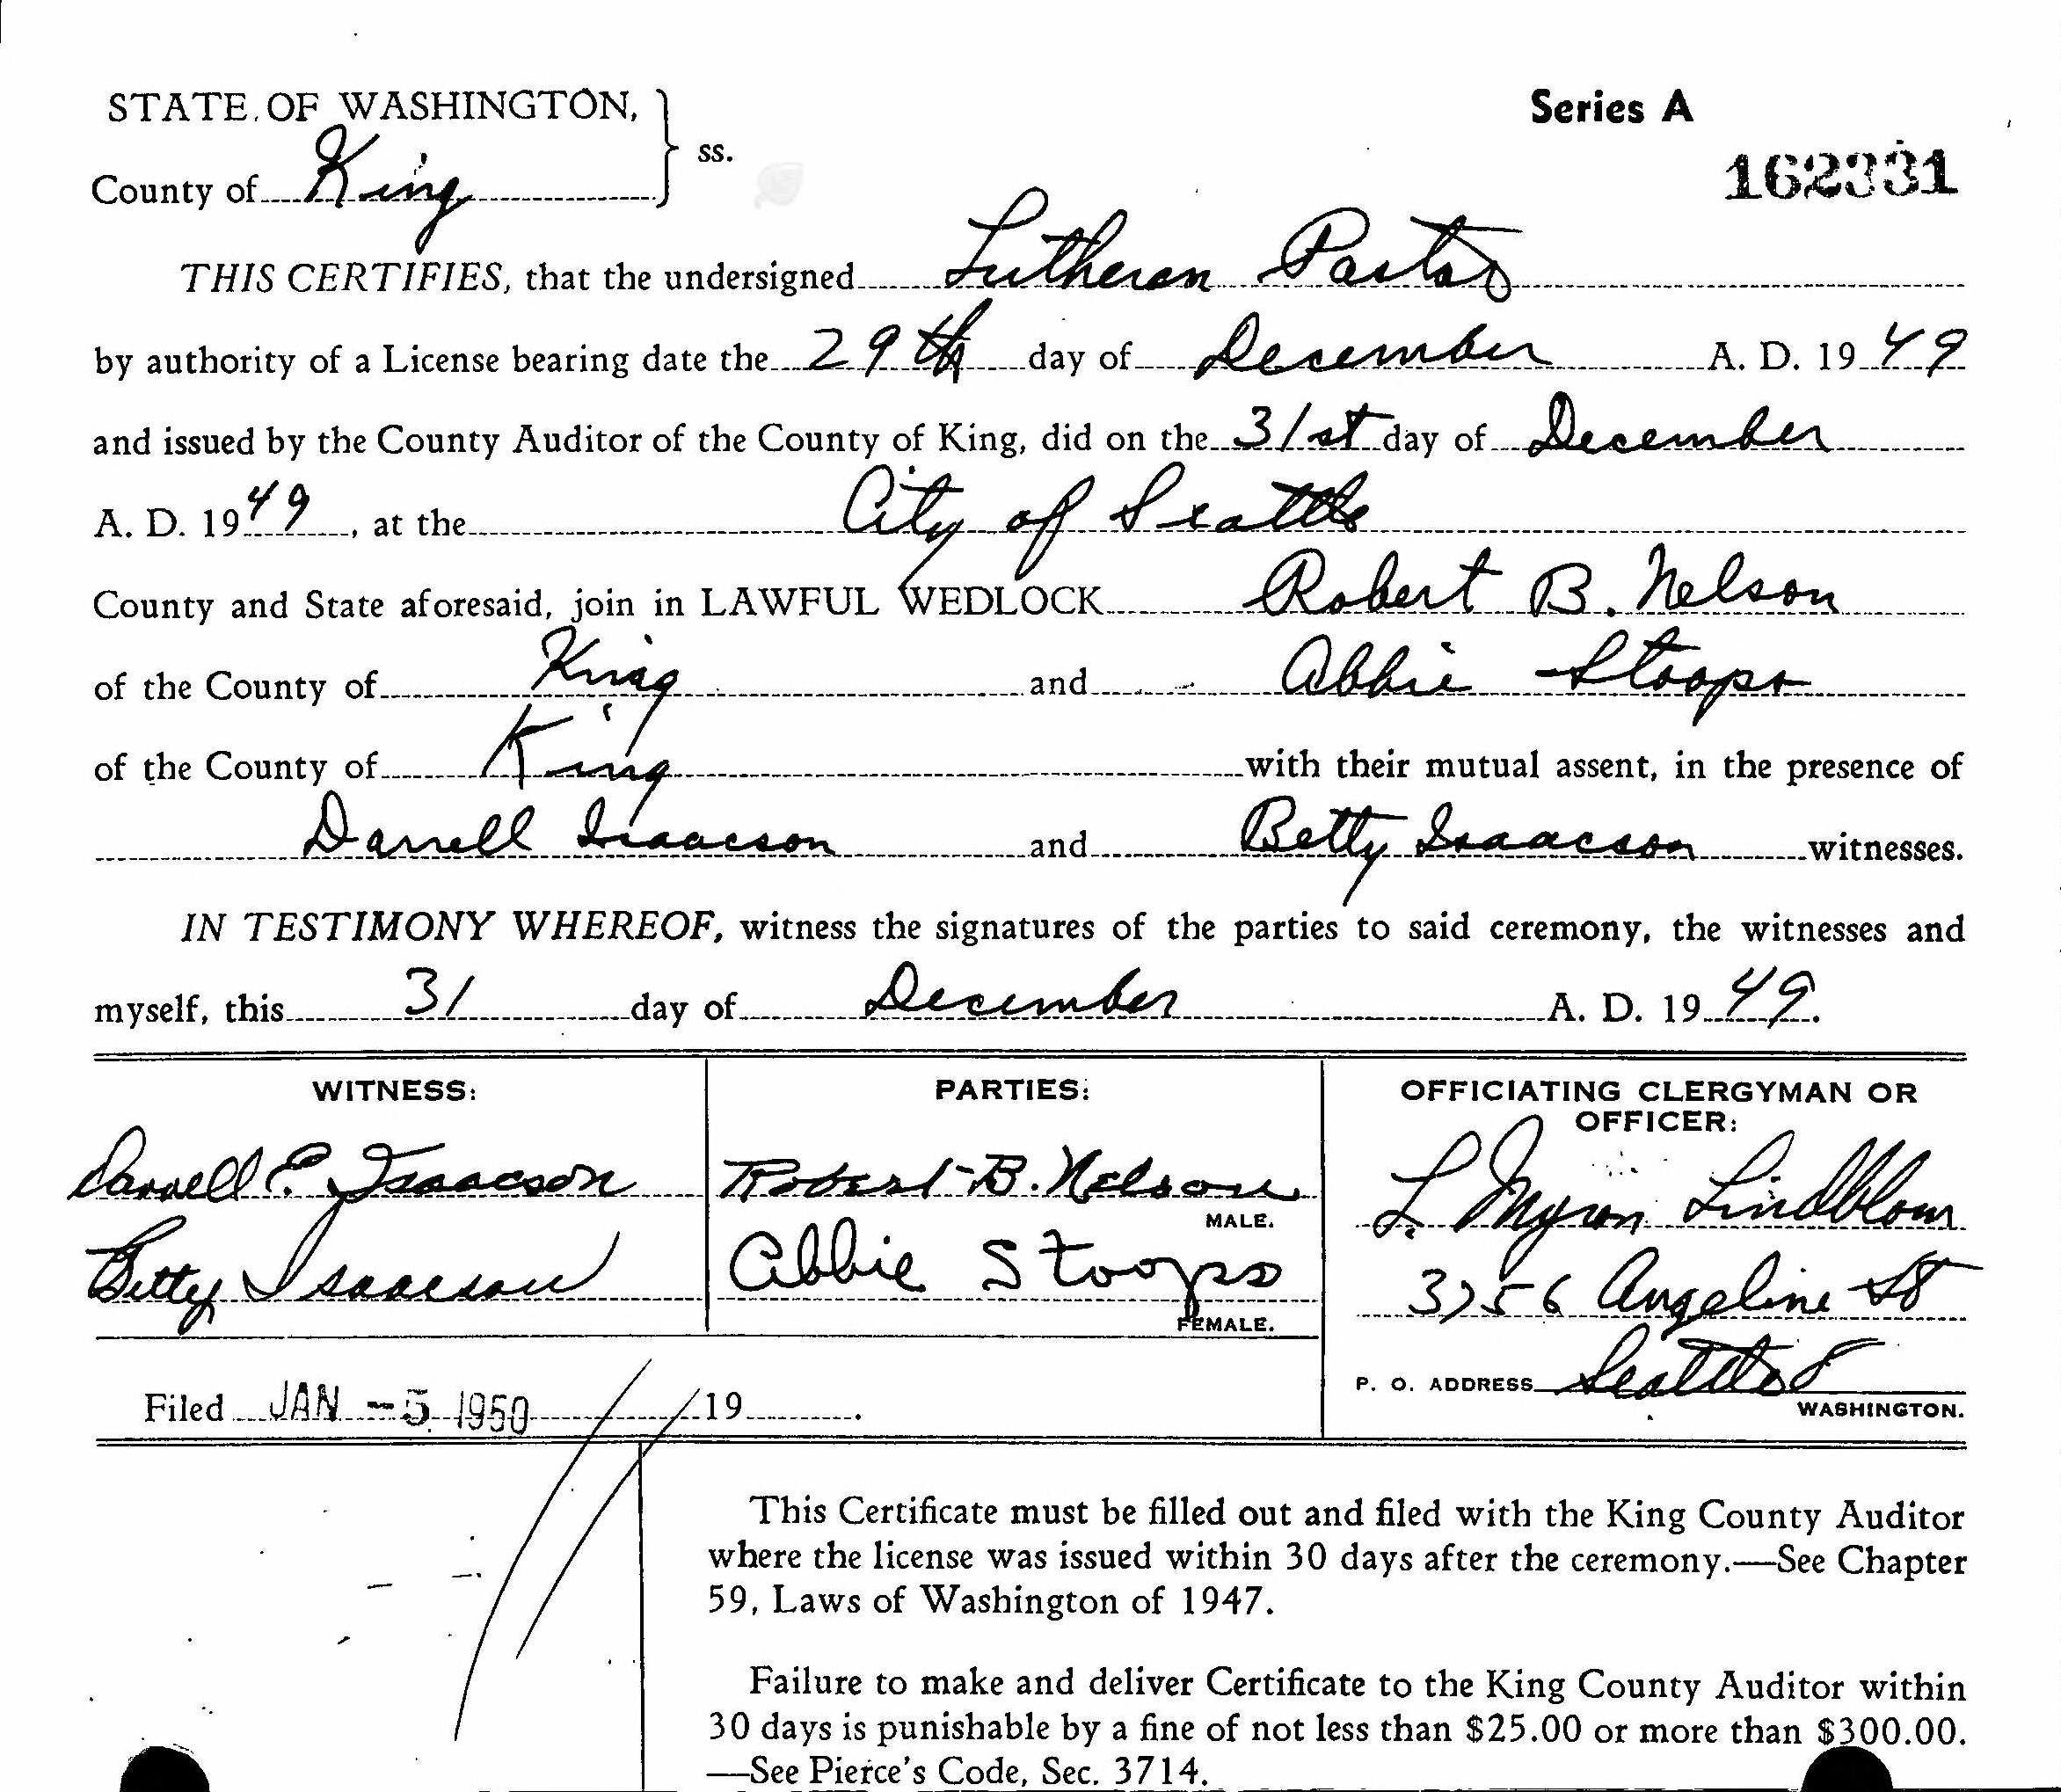 STATE OF WASHINGTON,
ss.
County of King
Series A
162331
THIS CERTIFIES, that the undersigned Lutheran Pastor
by authority of a License bearing date the 29th day of December A. D. 19 49
and issued by the County Auditor of the County of King, did on the 31st day of December
A. D. 19 49, at the City of Seattle
County and State aforesaid, join in LAWFUL WEDLOCK Robert B. Nelson
of the County of King and Abbie Stoops
of the County of King with their mutual assent, in the presence of
Darrell Isaacson and Betty Isaacson witnesses.
IN TESTIMONY WHEREOF, witness the signatures of the parties to said ceremony, the witnesses and
myself, this 31 day of December A. D. 19 49.
WITNESS:
Darrell E. Isaacson
Betty Isaacson
PARTIES:
Robert B. Nelson
MALE.
Abbie Stoops
FEMALE.
OFFICIATING CLERGYMAN OR
OFFICER:
L. Myron Lindblom
3756 Angeline St
P. O. ADDRESS Seattle 8
WASHINGTON.
Filed JAN -5 1950 19 .
This Certificate must be filled out and filed with the King County Auditor
where the license was issued within 30 days after the ceremony.—See Chapter
59, Laws of Washington of 1947.
Failure to make and deliver Certificate to the King County Auditor within
30 days is punishable by a fine of not less than $25.00 or more than $300.00.
—See Pierce's Code, Sec. 3714.